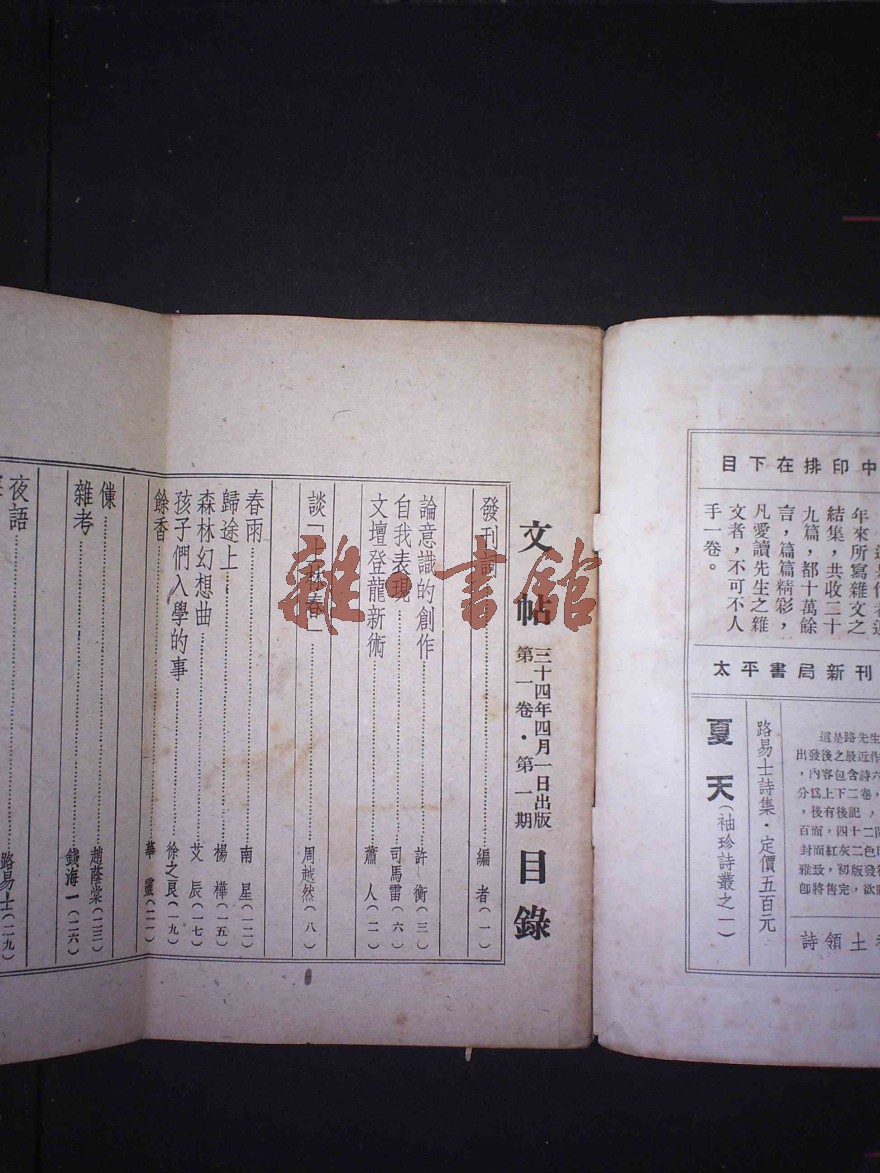 目下在排印中
年來所寫雜文之
結集，共收二十
九篇，都十萬餘
言，篇篇精彩，
凡愛讀先生之雜
文者，不可不人
手一卷。
太平書局新刊
這是路先生
出發後之最近作
，內容包含詩六
分爲上下二卷，
，後有後記，
百面，四十二開
封面紅灰二色印
雅致，初版發行
卽將售完，欲
路易士詩集·定價五百元
夏天（袖珍詩叢之一）
土領詩
文帖 三十四年四月一日出版 第一卷·第一期 目錄
發刊詞 編者（一）
論意識的創作 許衡（三）
自我表現 司馬雷（六）
文壇登龍新術 蕭人（二）
談「上林春」 周越然（八）
春雨 南星（一二）
歸途上 楊樺（一五）
森林幻想曲 艾辰（一七）
孩子們入學的事 徐之良（一九）
餘香 華靈（二一）
傔 趙蔭棠（二三）
雜考 錢海一（二六）
夜語 路易士（二九）
雜·書館